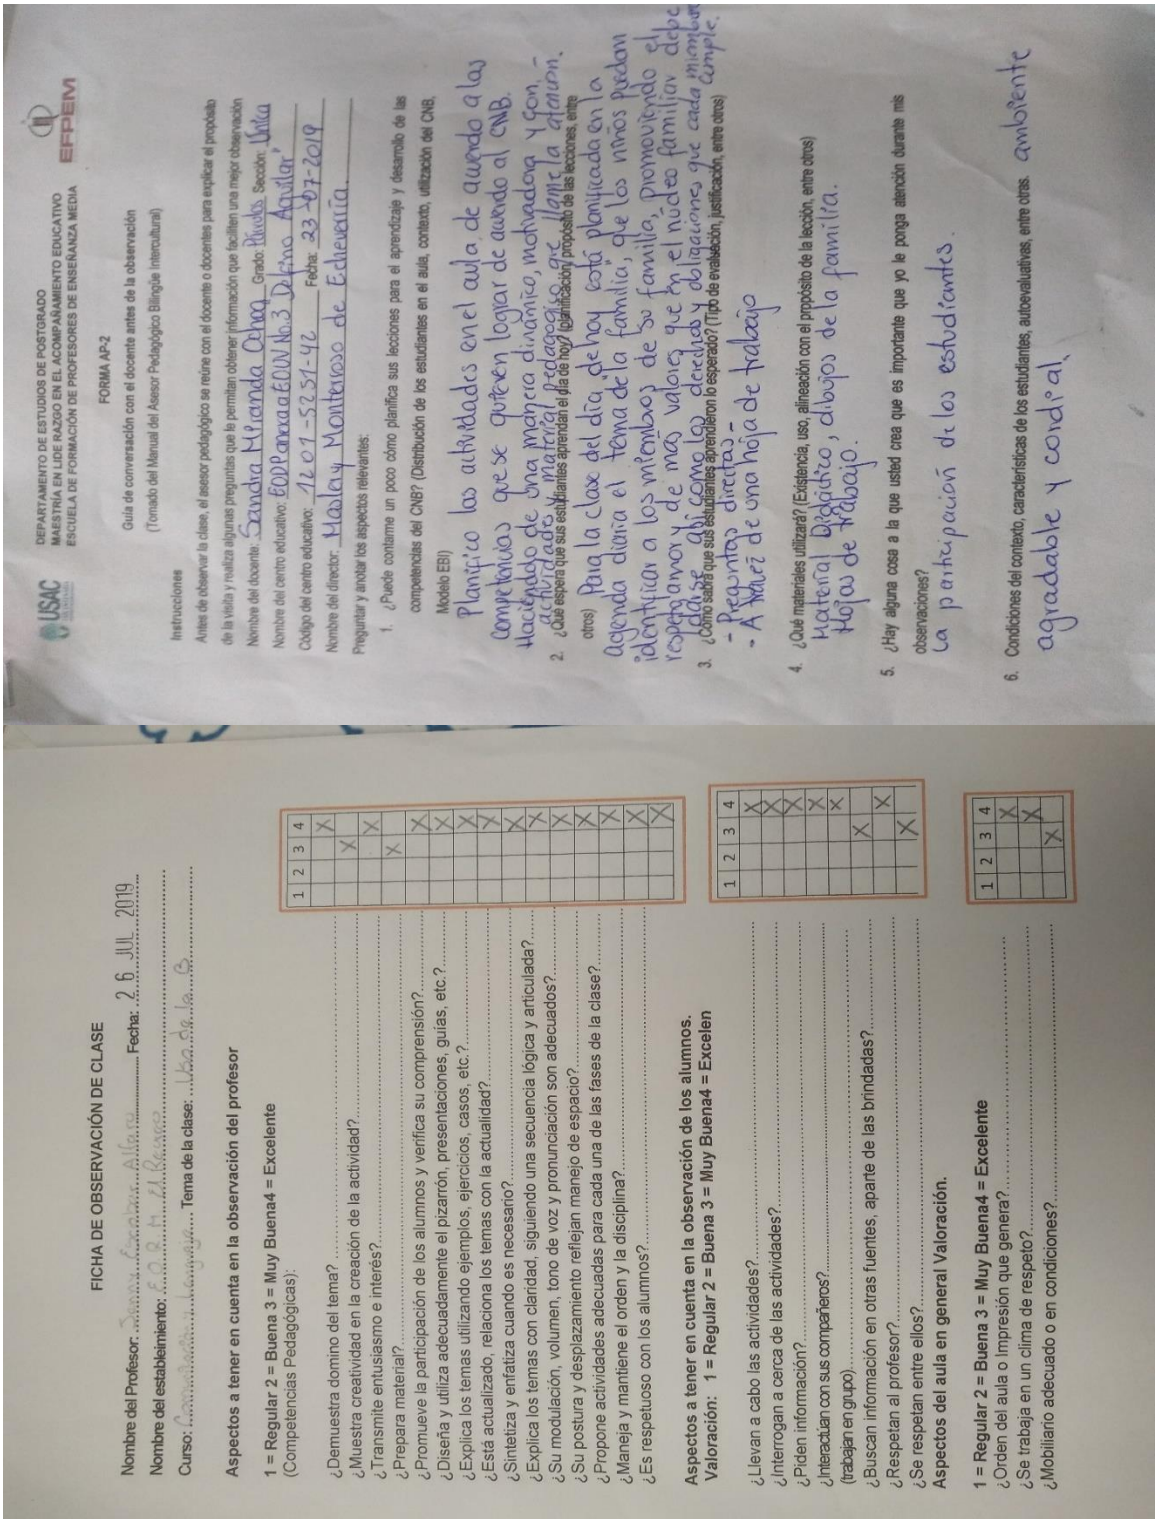 USAC
DEPARTAMENTO DE ESTUDIOS DE POSTGRADO
MAESTRÍA EN LIDERAZGO EN EL ACOMPAÑAMIENTO EDUCATIVO
ESCUELA DE FORMACIÓN DE PROFESORES DE ENSEÑANZA MEDIA
EFPEM
FORMA AP-2
Guía de conversación con el docente antes de la observación
(Tomado del Manual del Asesor Pedagógico Bilingüe Intercultural)
Instrucciones
Antes de observar la clase, el asesor pedagógico se reúne con el docente o docentes para explicar el propósito
de la visita y realiza algunas preguntas que le permitan obtener información que faciliten una mejor observación
Nombre del docente: Sandra Miranda Ochoa Grado: Párvulos Sección: Única
Nombre del centro educativo: EODP anexa a EOUV No. 3 Delfino Aguilar"
Código del centro educativo: 1201-5251-42 Fecha: 23-07-2019
Nombre del director: Masley Monterroso de Echeverría.
Preguntar y anotar los aspectos relevantes:
1. ¿Puede contarme un poco cómo planifica sus lecciones para el aprendizaje y desarrollo de las
competencias del CNB? (Distribución de los estudiantes en el aula, contexto, utilización del CNB,
Modelo EBI)
Planifico las actividades en el aula de acuerdo a las
competencias que se quieren lograr de acuerdo al CNB.
Haciéndolo de una manera dinámico, motivadora y con -
actividades y material pedagógico que llame la atención.
2. ¿Qué espera que sus estudiantes aprendan el día de hoy? (planificación, propósito de las lecciones, entre
otros) Para la clase del día de hoy está planificada en la
agenda diaria el tema de la familia", que los niños puedan
identificar a los miembros de su familia, promoviendo el
respeto, amor y de mas valores que en el núcleo familiar debe
darse, así como los derechos y obligaciones que cada miembro
cumple.
3. ¿Cómo sabrá que sus estudiantes aprendieron lo esperado? (Tipo de evaluación, justificación, entre otros)
- Preguntas directas -
- A través de una hoja de trabajo
4. ¿Qué materiales utilizará? (Existencia, uso, alineación con el propósito de la lección, entre otros)
Material Didáctico, dibujos de la familia.
Hojas de trabajo.
5. ¿Hay alguna cosa a la que usted crea que es importante que yo le ponga atención durante mis
observaciones?
La participación de los estudiantes.
6. Condiciones del contexto, características de los estudiantes, autoevaluativas, entre otras. ambiente
agradable y cordial.
FICHA DE OBSERVACIÓN DE CLASE
Nombre del Profesor: Jenny Escobar Alfaro Fecha: 26 JUL 2019
Nombre del estableimiento: E.O.R.M El Recreo
Curso: Comunicación y Lenguaje Tema de la clase: Uso de la B
Aspectos a tener en cuenta en la observación del profesor
1 = Regular 2 = Buena 3 = Muy Buena4 = Excelente
(Competencias Pedagógicas):
1 2 3 4
¿Demuestra domino del tema? X
¿Muestra creatividad en la creación de la actividad? X
¿Transmite entusiasmo e interés? X
¿Prepara material? X
¿Promueve la participación de los alumnos y verifica su comprensión? X
¿Diseña y utiliza adecuadamente el pizarrón, presentaciones, guías, etc.? X
¿Explica los temas utilizando ejemplos, ejercicios, casos, etc.? X
¿Está actualizado, relaciona los temas con la actualidad? X
¿Sintetiza y enfatiza cuando es necesario? X
¿Explica los temas con claridad, siguiendo una secuencia lógica y articulada? X
¿Su modulación, volumen, tono de voz y pronunciación son adecuados? X
¿Su postura y desplazamiento reflejan manejo de espacio? X
¿Propone actividades adecuadas para cada una de las fases de la clase? X
¿Maneja y mantiene el orden y la disciplina? X
¿Es respetuoso con los alumnos? X
Aspectos a tener en cuenta en la observación de los alumnos.
Valoración: 1 = Regular 2 = Buena 3 = Muy Buena4 = Excelen
1 2 3 4
¿Llevan a cabo las actividades? X
¿Interrogan a cerca de las actividades? X
¿Piden información? X
¿Interactúan con sus compañeros? X
(trabajan en grupo) X
¿Buscan información en otras fuentes, aparte de las brindadas? X
¿Respetan al profesor? X
¿Se respetan entre ellos? X
Aspectos del aula en general Valoración.
1 = Regular 2 = Buena 3 = Muy Buena4 = Excelente
1 2 3 4
¿Orden del aula o Impresión que genera? X
¿Se trabaja en un clima de respeto? X
¿Mobiliario adecuado o en condiciones? X